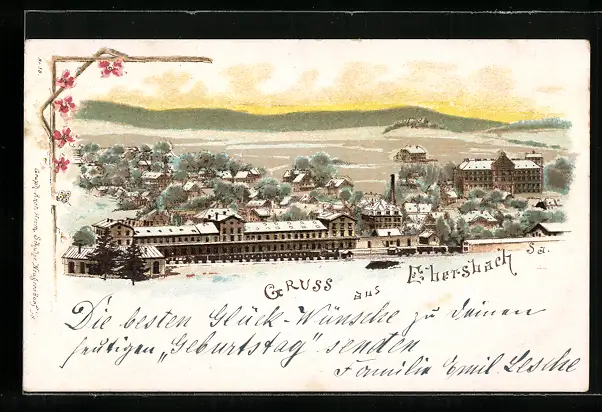 GRUSS aus Ebersbach Sa.
Die besten Glück-Wünsche zu deinen
heutigen „Geburtstag" senden
Familie Emil Lesche